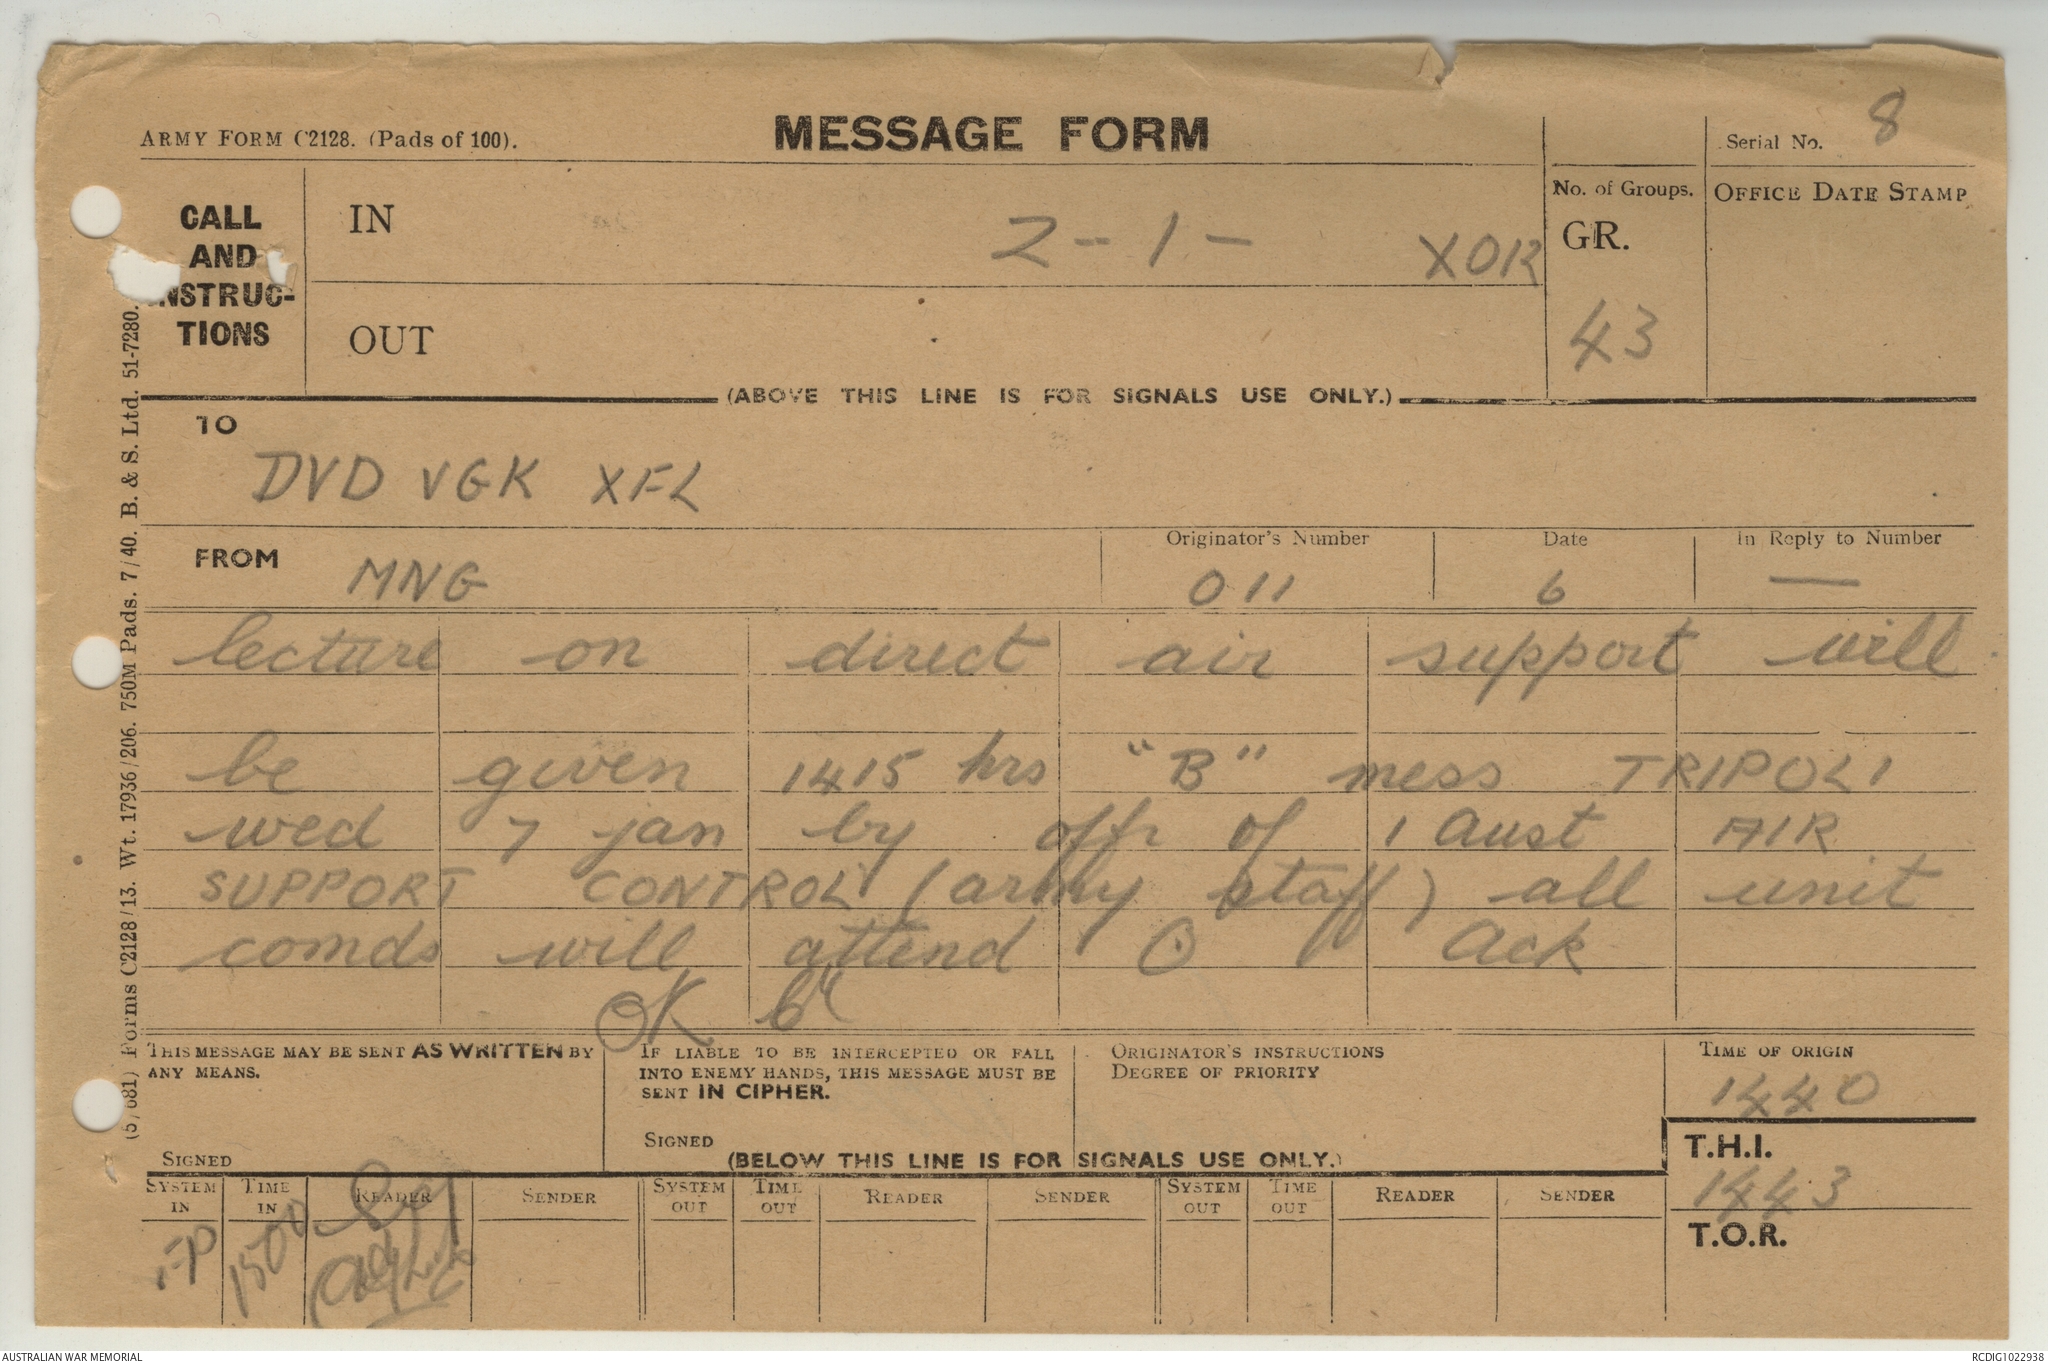 ARMY FORM C2128. (Pads of 100).
MESSAGE FORM
Serial No. 8
CALL
AND
INSTRUC-
TIONS
IN
2 - 1 -
XOR
No. of Groups.
GR.
43
OFFICE DATE STAMP
OUT
(ABOVE THIS LINE IS FOR SIGNALS USE ONLY.)
TO
DVD VGK XFL
FROM
MNG
Originator's Number
011
Date
6
In Reply to Number
—
lecture on direct air support will
be given 1415 hrs "B" mess TRIPOLI
wed 7 jan by offr of 1 Aust AIR
SUPPORT CONTROL (army staff) all unit
comds will attend O Ack
OK
THIS MESSAGE MAY BE SENT AS WRITTEN BY
ANY MEANS.
SIGNED
IF LIABLE TO BE INTERCEPTED OR FALL
INTO ENEMY HANDS, THIS MESSAGE MUST BE
SENT IN CIPHER.
SIGNED
ORIGINATOR'S INSTRUCTIONS
DEGREE OF PRIORITY
TIME OF ORIGIN
1440
T.H.I.
1443
T.O.R.
(BELOW THIS LINE IS FOR SIGNALS USE ONLY.)
SYSTEM IN
TIME IN
READER
SENDER
SYSTEM OUT
TIME OUT
READER
SENDER
SYSTEM OUT
TIME OUT
READER
SENDER
1500
681) Forms C2128/13. Wt. 17936/206. 750M Pads. 7/40. B. & S. Ltd. 51-7280.
AUSTRALIAN WAR MEMORIAL
RCDIG1022938